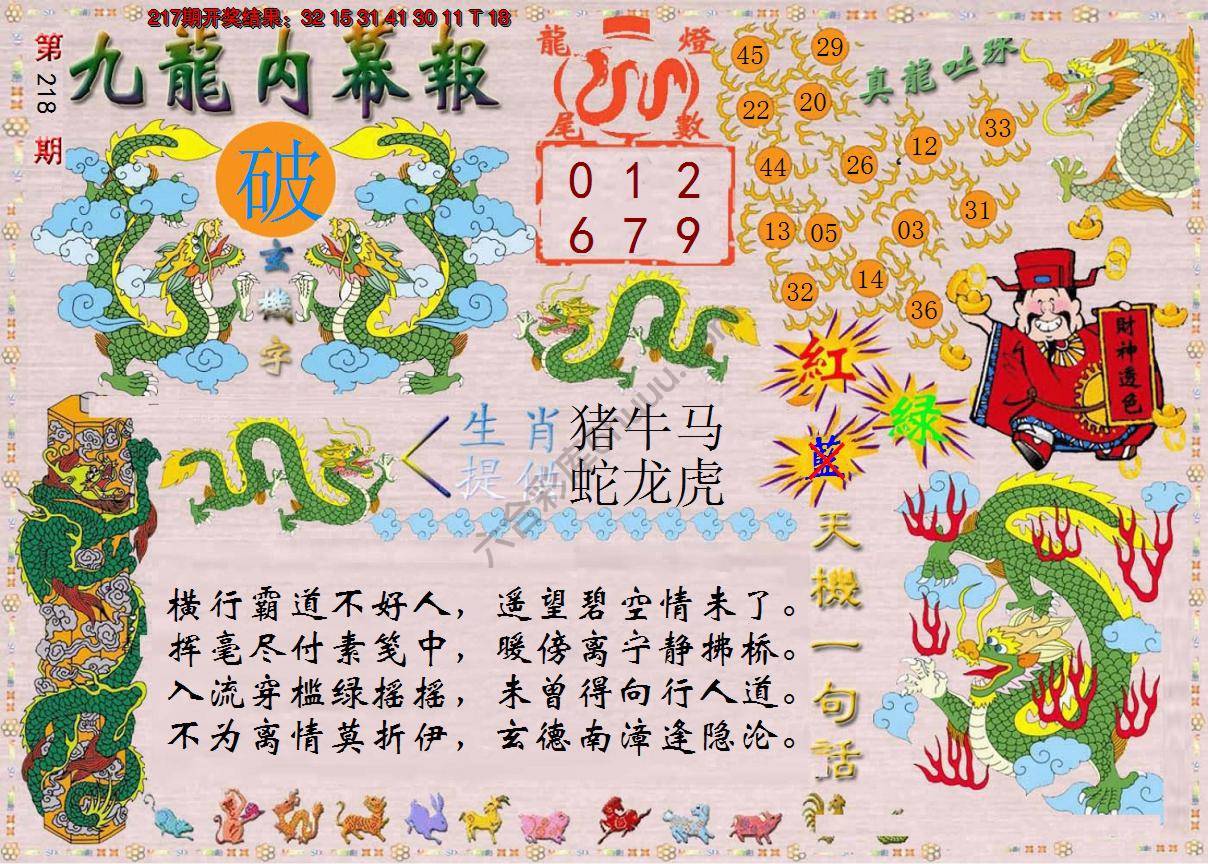 217期开奖结果：32 15 31 41 30 11 T 18
第218期
九龍内幕報
破
玄機字
龍燈
尾數
0 1 2
6 7 9
真龍吐珠
45 29
22 20
44 26 12 33
13 05 03 31
32 14 36
財神透色
紅
綠
藍
生肖 猪牛马
提供 蛇龙虎
天機一句話
横行霸道不好人，遥望碧空情未了。
挥毫尽付素笺中，暖傍离宁静拂桥。
入流穿槛绿摇摇，未曾得向行人道。
不为离情莫折伊，玄德南漳逢隐沦。